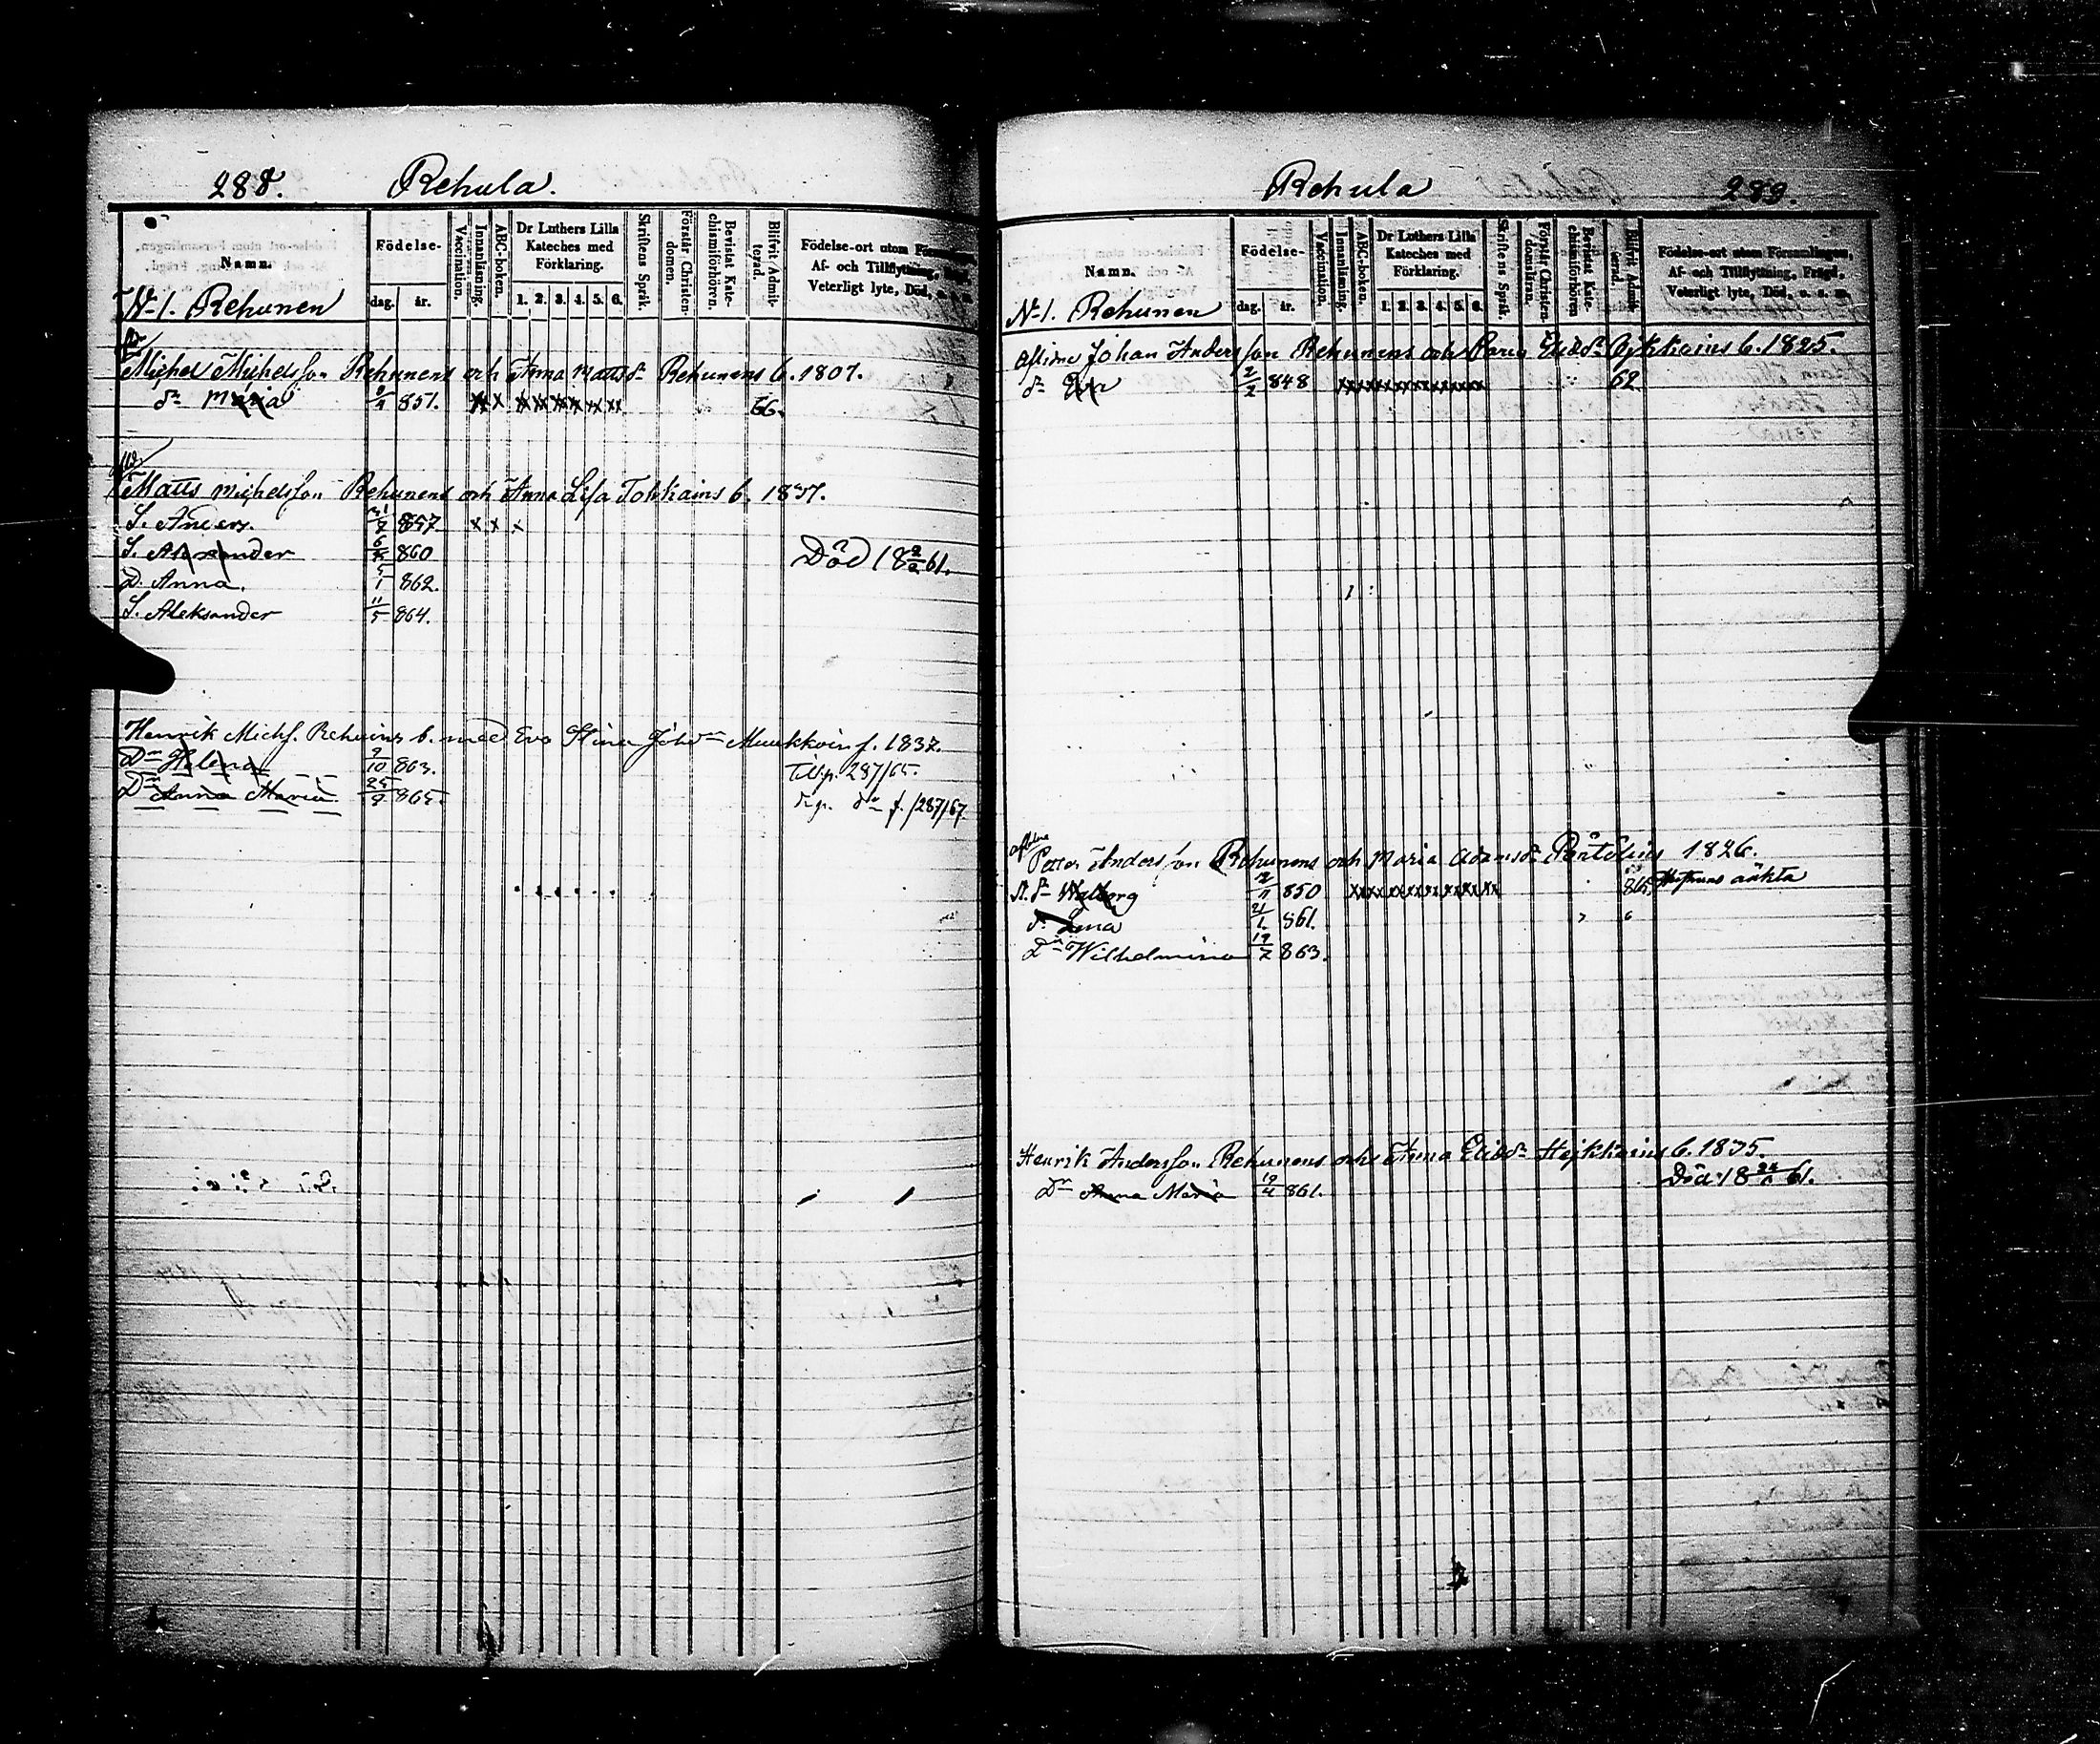 288. Rehula.
Namn.
Födelse-
dag. år.
Vaccination.
Innanläsning.
ABC-boken.
Dr Luthers Lilla
Kateches med
Förklaring.
1. 2. 3. 4. 5. 6.
Skriftens Språk.
Förstår Christen-
domen.
Bevistat Kate-
chismiförhören.
Blifvit Admit-
terad.
Födelse-ort utom
Af- och Tillflyttning,
Veterligt lyte, Död, o. s. m.
N-1. Rehunen
Michel Michelsson Rehunens och Anna Matts dr Rehunens b. 1807.
dr Maria 851. x x x x x x x x 66.
Matts Michelsson Rehunens och Anna Lisa Tokkains b. 1837.
S. Anders. 857 x x x
S. Alexander 6 860 Död 18 2/2 61.
D. Anna. 5/1 862.
S. Aleksander 11/5 864.
Henrik Michs. Rehuins b. med Eva Stina Johdr Muukkoin f. 1837.
Dr Helena 9/10 863. Till p. 287/65.
Dr Anna Maria. 25/9 865. dr f. /287/67
Rehula 289.
Namn.
Födelse-
dag. år.
Vaccination.
Innanläsning.
ABC-boken.
Dr Luthers Lilla
Kateches med
Förklaring.
1. 2. 3. 4. 5. 6.
Skriftens Språk.
Förstår Christen-
domsläran.
Bevistat Kate-
chismiförhören
Blifvit Admit-
terad.
Födelse-ort utom Församlingen,
Af- och Tillflyttning, Frägd,
Veterligt lyte, Död, o. s. m.
N-1. Rehunen
Aflidne Johan Andersson Rehunens och Maria Eliædr b. 1825.
dr 2/2 848 xxxxxxxxxxxx 62
Petter Andersson Rehunens och Maria Adamsdr 1826.
dr Walborg 2/11 850 xxxxxxxxxxxx 865 äkta
d. Lena 21/1. 861.
Dr Wilhelmina 19/7 863.
Henrik Andersson Rehunens och Anna Eliædr Hejkkains b. 1835.
Dr Anna Maria 19/4 861. Död 18 61.